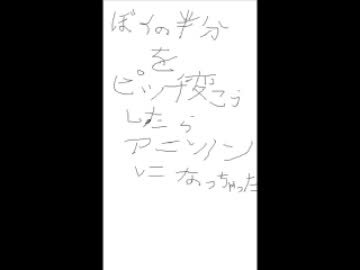 ぼくの半分
を
ピッチ変こう
したら
アニソン
に なっちゃった